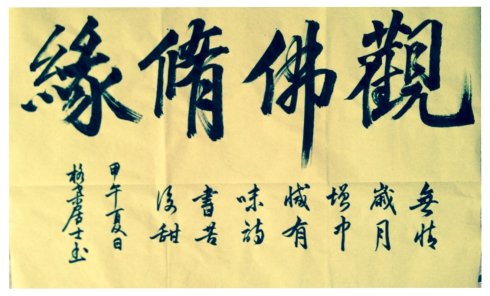 觀佛脩緣
無情
歲月
增中
減有
味詩
書苦
後甜
甲午夏日
居士